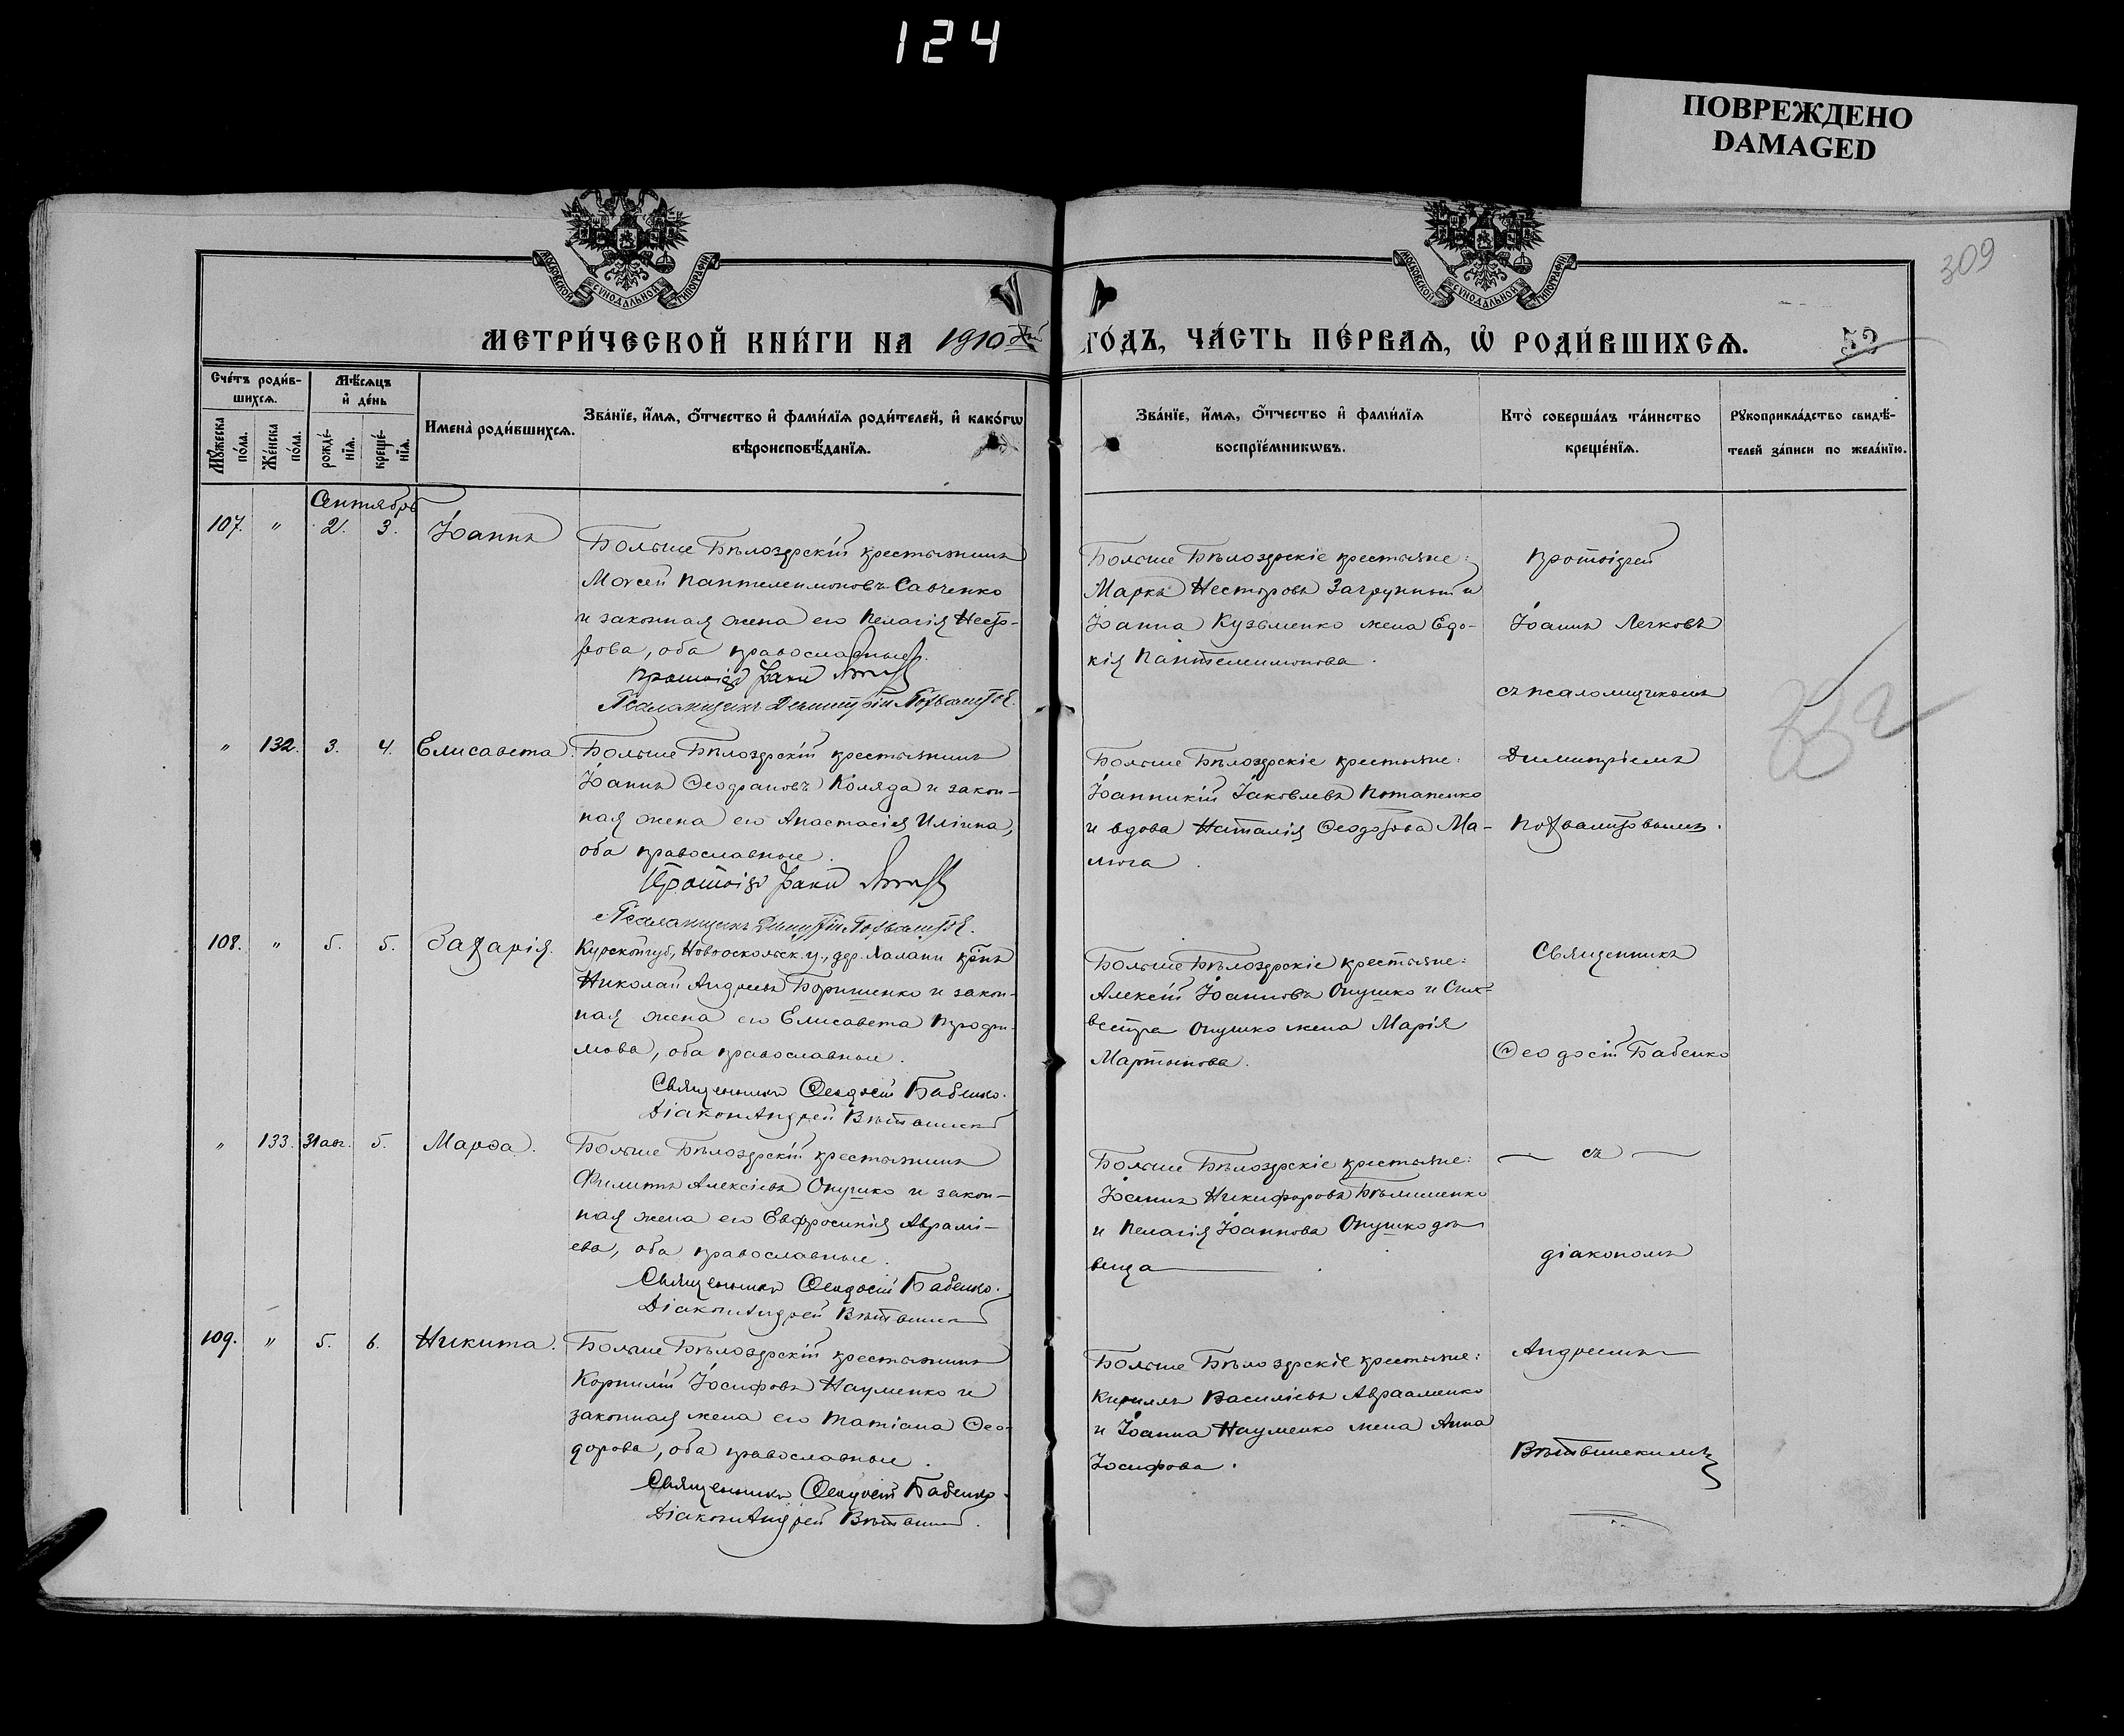 124
ПОВРЕЖДЕНО
DAMAGED
309
МОСКОВСКОЙ СѴНОДАЛЬНОЙ ТИПОГРАФІИ
МОСКОВСКОЙ СѴНОДАЛЬНОЙ ТИПОГРАФІИ
МЕТРИ́ЧЕСКОЙ КНИ́ГИ НА 1910й
ГО́ДЪ, ЧА́СТЬ ПЕ́РВАѦ, Ѡ҆ РОДИ́ВШИХСѦ.
52
Сче́тъ роди́в-
шихсѧ.
Мѣ́сѧцъ
и҆ де́нь
Мꙋ́жеска по́ла.
Же́нска по́ла.
рожде́-нїѧ.
креще́-нїѧ.
Имена̀ роди́вшихсѧ.
Зва́нїе, и҆́мѧ, ѻ҆́тчество и҆ фами́лїѧ роди́телей, и҆ како́гѡ
вѣроисповѣ́данїѧ.
Зва́нїе, и҆́мѧ, ѻ҆́тчество и҆ фами́лїѧ
воспрїе́мникѡвъ.
Кто̀ соверша́лъ та́инство
креще́нїѧ.
Рꙋкоприкла́дство свидѣ́-
телей за́писи по жела́нїю.
Сентябрь
107. " 2. 3. Іоаннъ
Больше Бѣлозерскій крестьянинъ
Моѵсей Пантелеимоновъ Савченко
и законная жена его Пелагія Несто-
рова, оба православные.
Протоіер Іоанн
Псаломщикъ Димитрій Похвалитов.
Больше Бѣлозерскіе крестьяне:
Маркъ Несторовъ Загрунный и
Іоанна Кузьменко жена Евдо-
кія Пантелеимонова.
Протоіерей
Іоаннъ Легковъ
съ псаломщикомъ
332
" 132. 3. 4. Елисавета.
Больше Бѣлозерскій крестьянинъ
Іоаннъ Ѳеофановъ Коляда и закон-
ная жена его Анастасія Илiина,
оба православные.
Протоіер Іоанн
Псаломщикъ Димитрій Похвалитов.
Больше Бѣлозерскіе крестьяне:
Іоанникій Іаковлевъ Потапенко
и вдова Наталія Ѳеодорова Ма-
люга.
Димитріемъ
Похвалитовымъ.
108. " 5. 5. Захарія.
Курской губ., Новооскольск. у., дер. Халани кр-нъ
Николай Андреевъ Боришенко и закон-
ная жена его Елисавета Трофи-
мова, оба православные.
Священникъ Ѳеодосій Бабенко.
Діаконъ Андрей Вѣтвинскій
Больше Бѣлозерскіе крестьяне:
Алексій Іоанновъ Опушко и Силь-
вестра Опушко жена Марія
Мартынова.
Священникъ
Ѳеодосій Бабенко
" 133. 31 авг. 5. Марѳа.
Больше Бѣлозерскій крестьянинъ
Филиппъ Алексіевъ Опушко и закон-
ная жена его Евфросинія Аврамі-
ева, оба православные.
Священникъ Ѳеодосій Бабенко.
Діаконъ Андрей Вѣтвинскій
Больше Бѣлозерскіе крестьяне:
Іоаннъ Никифоровъ Бѣлименко
и Пелагія Іоаннова Опушко дѣ-
вица
— съ —
діакономъ
109. " 5. 6. Никита.
Больше Бѣлозерскій крестьянинъ
Корнилій Іосифовъ Науменко и
законная жена его Татіана Ѳео-
дорова, оба православные.
Священникъ Ѳеодосій Бабенко.
Діаконъ Андрей Вѣтвинскій.
Больше Бѣлозерскіе крестьяне:
Кириллъ Василіевъ Авраменко
и Іоанна Науменко жена Анна
Іосифова.
Андреемъ
Вѣтвинскимъ